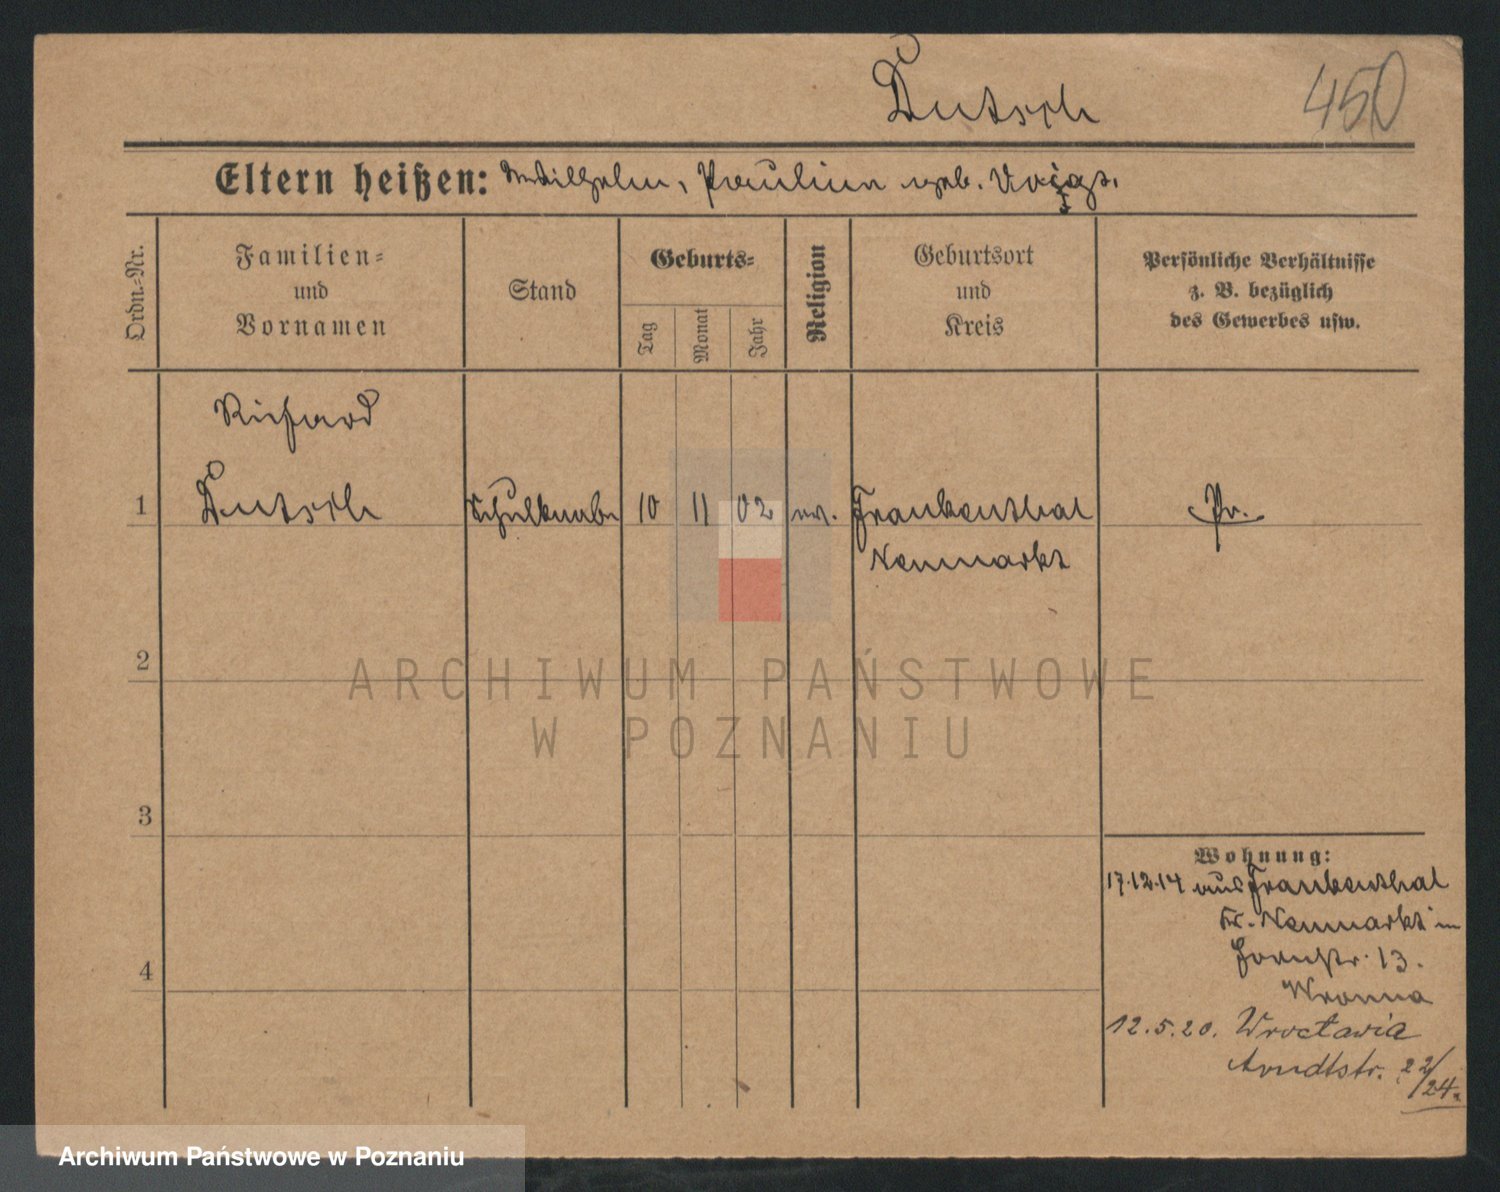 Deutsch
450
Eltern heißen: Wilhelm, Pauline geb. Voigt.
Ordn.-Nr.
Familien-
und
Vornamen
Stand
Geburts-
Tag
Monat
Jahr
Religion
Geburtsort
und
Kreis
Persönliche Verhältnisse
z. B. bezüglich
des Gewerbes usw.
Richard
1 Deutsch Schulknabe 10 11 02 ev. Frankenthal Pr.
Neumarkt
2
ARCHIWUM PAŃSTWOWE
W POZNANIU
3
Wohnung:
17.12.14 aus Frankenthal
Kr. Neumarkt in
13.
4
12.5.20. Wroclawia
Arndtstr. 22/24.
Archiwum Państwowe w Poznaniu